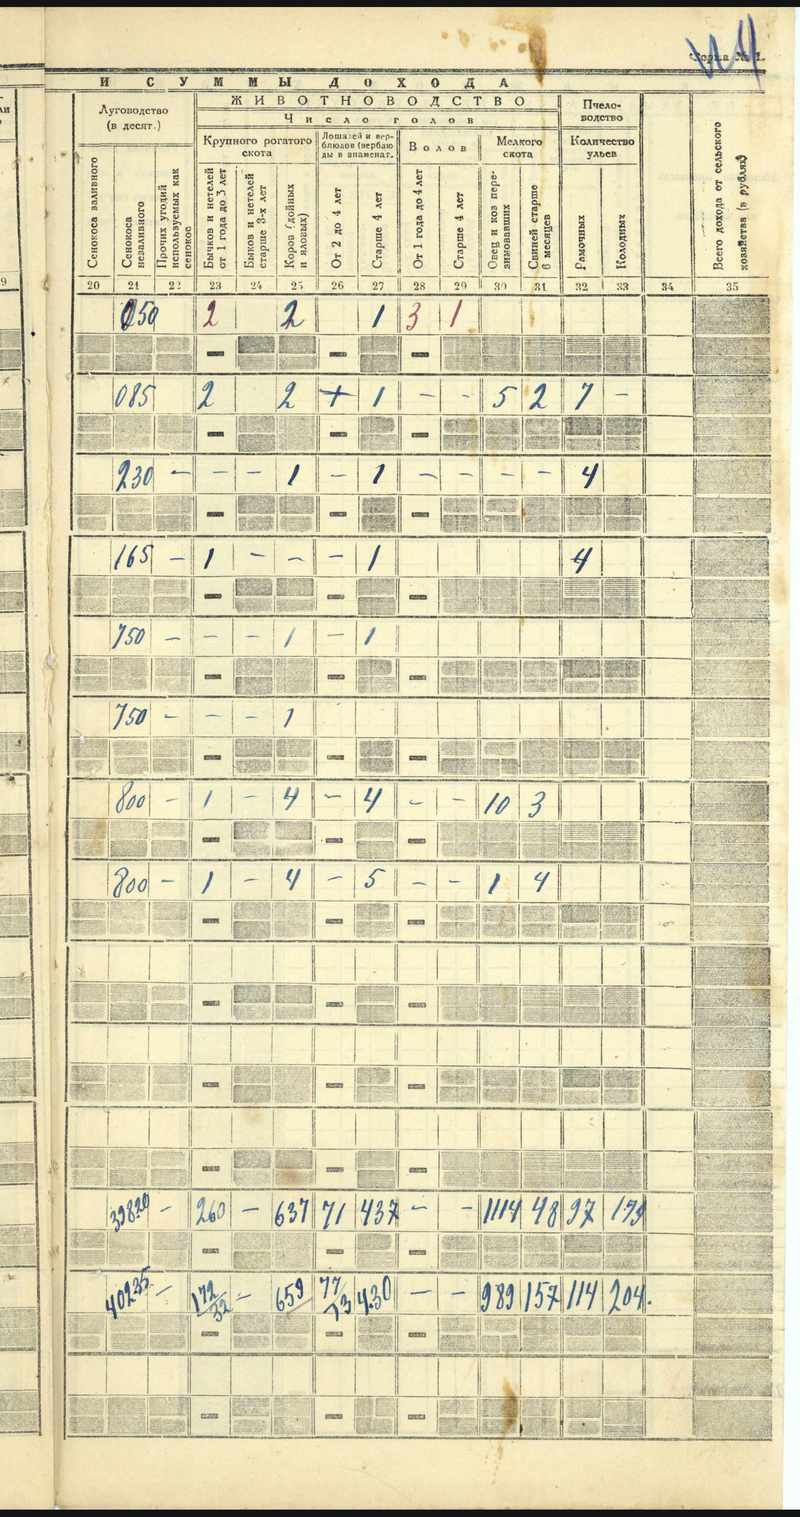 Форма № 1.
И СУММЫ ДОХОДА
Луговодство (в десят.)
ЖИВОТНОВОДСТВО
Число голов
Крупного рогатого скота
Лошадей и верблюдов (вербаюды в знаменат.
Волов
Мелкого скота
Пчеловодство
Количество ульев
Сенокоса заливного
Сенокоса незаливного
Прочих угодий используемых как сенокос
Бычков и нетелей от 1 года до 3 лет
Быков и нетелей старше 3-х лет
Коров (дойных и яловых)
От 2 до 4 лет
Старше 4 лет
От 1 года до 4 лет
Старше 4 лет
Овец и коз перезимовавших
Свиней старше 6 месяцев
Рамочных
Колодных
Всего дохода от сельского хозяйства (в рублях)
20 21 22 23 24 25 26 27 28 29 30 31 32 33 34 35
050 2 2 1 3 1
085 2 2 + 1 – – 5 2 7 –
230 – – – 1 – 1 – – – – 4
165 – 1 – – – 1 4
750 – – – 1 – 1
750 – – – 1
800 – 1 – 4 – 4 – – 10 3
800 – 1 – 4 – 5 – – 1 4
39820 – 260 – 637 71 437 – – 1114 48 97 179
40235 – 172/32 – 659 77/73 430 – – 989 157 114 204.